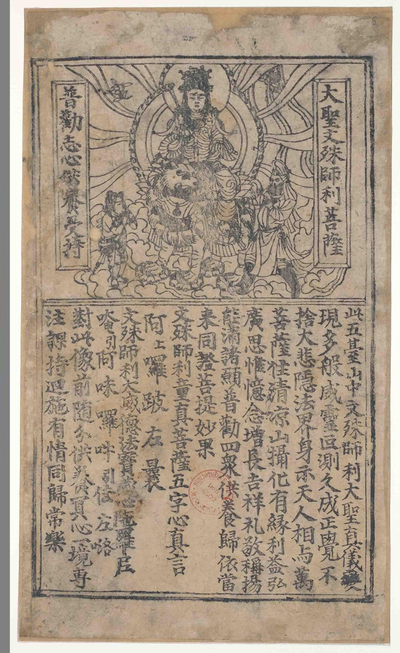 大聖文殊師利菩薩
普勸志心供養受持
此五臺山中文殊師利大聖真儀變
現多般威靈叵測久成正覺不
捨大悲隱法界身示天人相与萬
菩薩住清凉山攝化有緣利益弘
廣思惟憶念增長吉祥礼敬稱揚
能滿諸願普勸四衆供養歸依當
來同證菩提妙果
文殊師利童真菩薩五字心真言
阿上囉跛左曩
文殊師利大威德法寶藏心陀羅尼
唵引阿味囉吽引佉左咯
對此像前隨分供養冥心一境專
注課持迴施有情同歸常樂